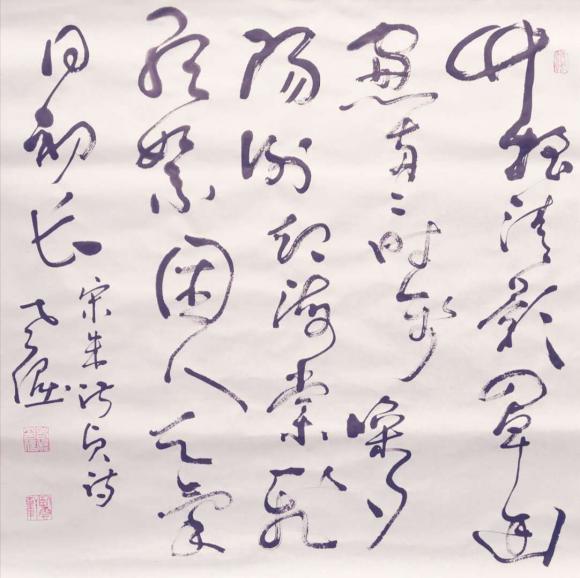 竹摇清影罩幽
窗两々时禽噪夕
阳谢却海棠飞
尽絮困人天气
日初长
宋朱淑贞诗